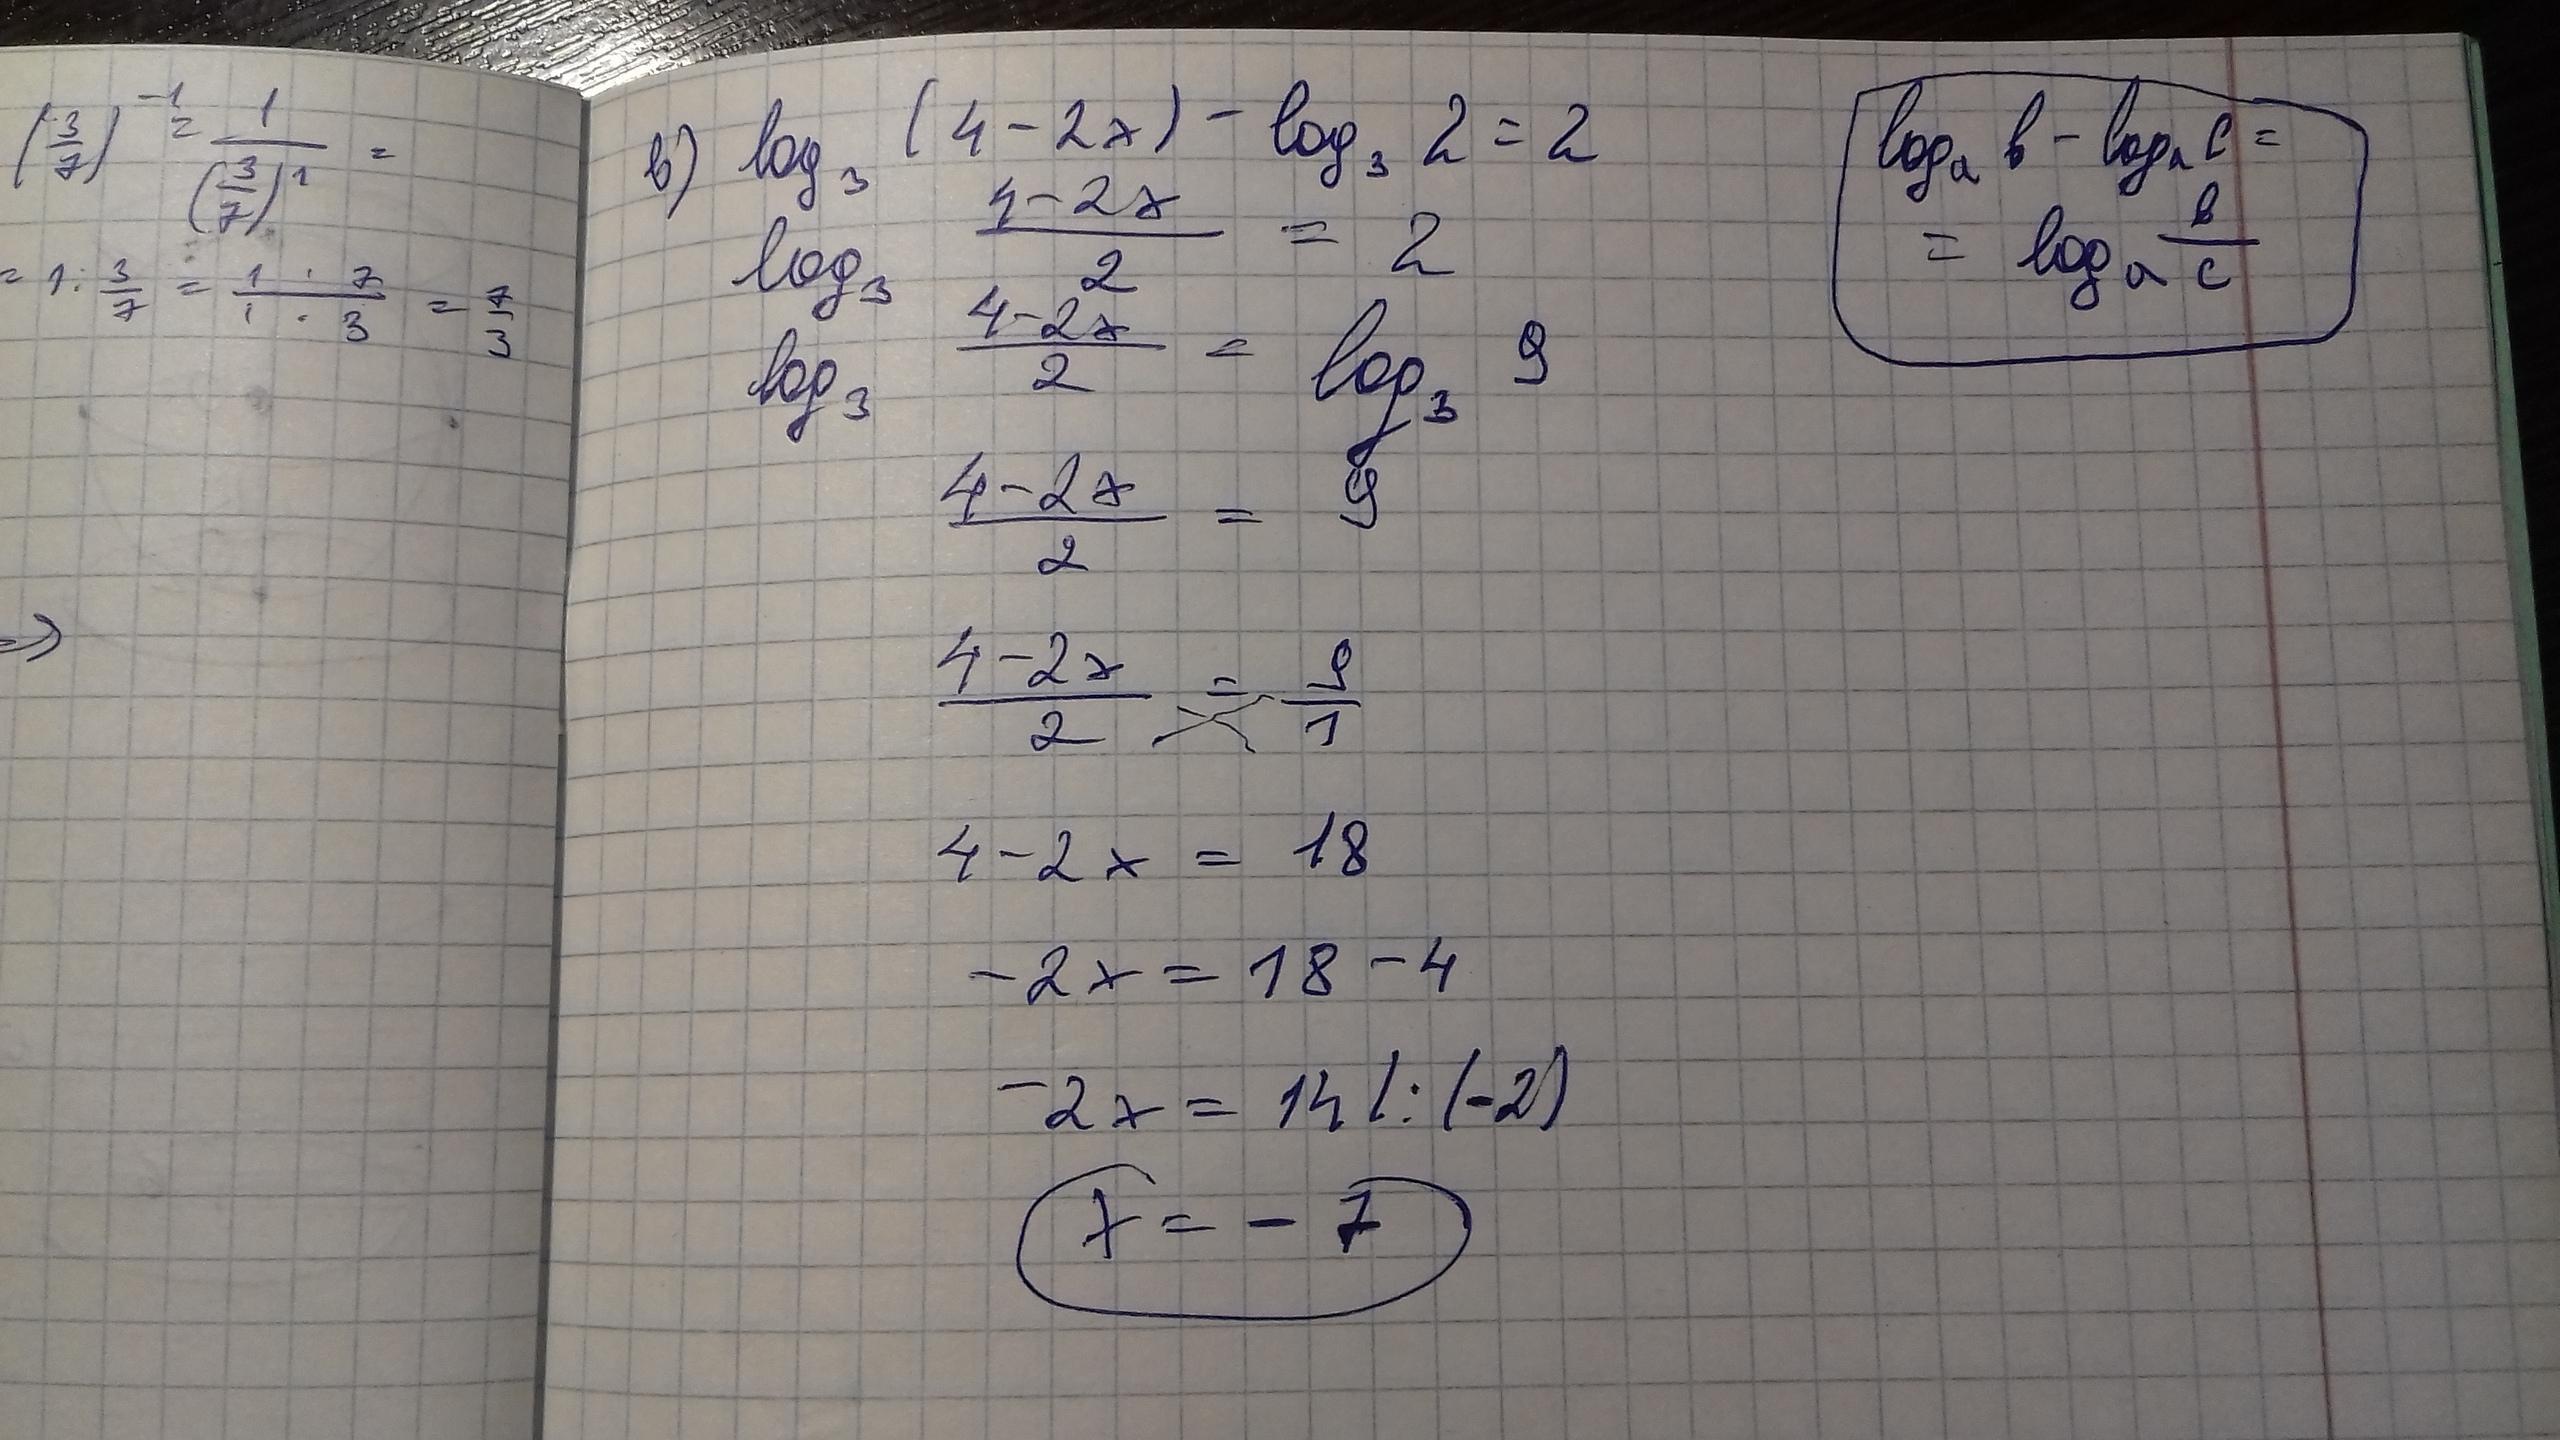 (3/7)^-1 = 1/(3/7)^1 =
= 1 : 3/7 = (1 · 7)/(1 · 3) = 7/3
=>
в) log₃ (4-2x) - log₃ 2 = 2
log₃ (4-2x)/2 = 2
log₃ (4-2x)/2 = log₃ 9
(4-2x)/2 = 9
(4-2x)/2 = 9/1
4-2x = 18
-2x = 18-4
-2x = 14 |:(-2)
x = -7
logₐ b - logₐ c =
= logₐ b/c